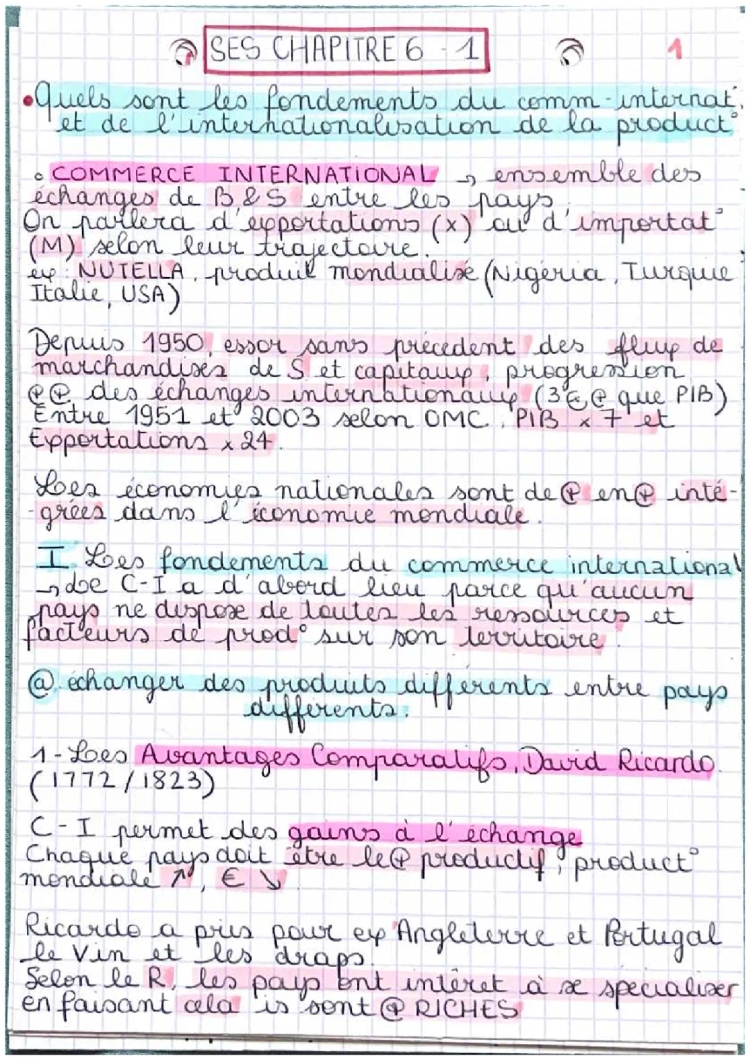 SES CHAPITRE 6 - 1
1
• Quels sont les fondements du comm-internat°
et de l'internationalisation de la product°
° COMMERCE INTERNATIONAL ↳ ensemble des
échanges de B & S entre les pays.
On parlera d'exportations (x) ou d'importat°
(M) selon leur trajectoire.
ex : NUTELLA, produit mondialisé (Nigéria, Turquie
Italie, USA)
Depuis 1950, essor sans précédent des flux de
marchandises de S et capitaux, progression
⊕⊕ des échanges internationaux (3 ⊕ que PIB)
Entre 1951 et 2003 selon OMC, PIB x 7 et
Exportations x 24.
Les économies nationales sont de ⊕ en ⊕ inté-
-grées dans l'économie mondiale.
I Les fondements du commerce international
↳ Le C-I a d'abord lieu parce qu'aucun
pays ne dispose de toutes les ressources et
facteurs de prod° sur son territoire.
@ échanger des produits différents entre pays
différents.
1 - Les Avantages Comparatifs, David Ricardo
(1772/1823)
C-I permet des gains à l'échange
Chaque pays doit être le ⊕ productif, product°
mondiale ↗, € ↘
Ricardo a pris pour ex Angleterre et Portugal
le Vin et les draps.
Selon le R, les pays ont intéret à se spécialiser
en faisant cela is sont ⊕ RICHES